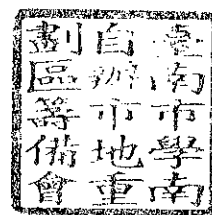 臺南市學南
自辦市地重
劃區籌備會